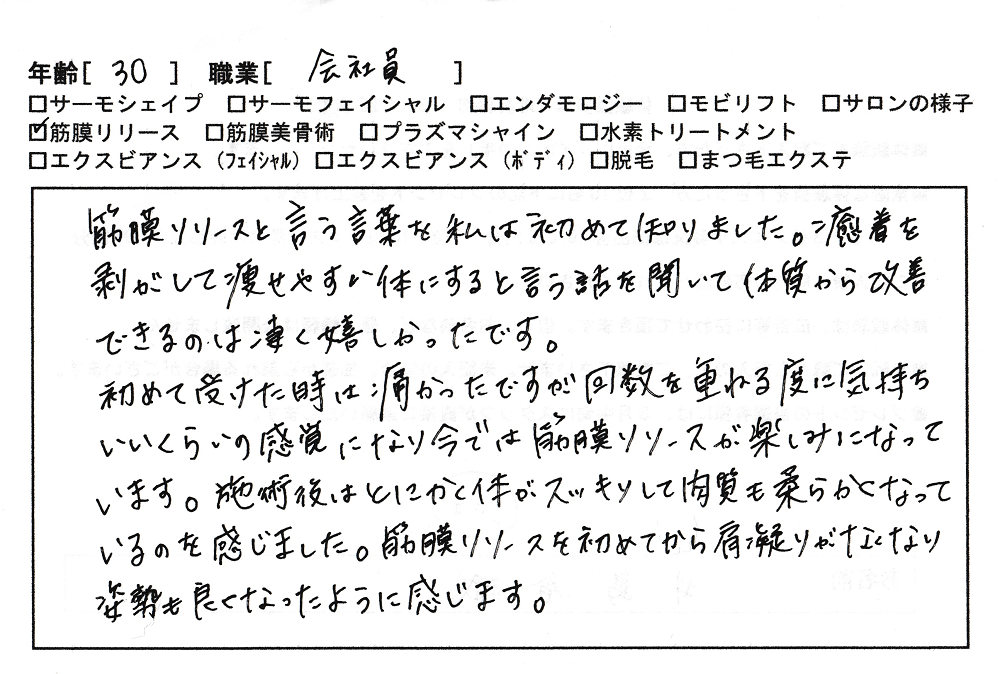 年齢[ 30 ] 職業[ 会社員 ]
□サーモシェイプ □サーモフェイシャル □エンダモロジー □モビリフト □サロンの様子
☑筋膜リリース □筋膜美骨術 □プラズマシャイン □水素トリートメント
□エクスビアンス（フェイシャル）□エクスビアンス（ボディ）□脱毛 □まつ毛エクステ
筋膜リリースと言う言葉を私は初めて知りました。癒着を
剥がして痩せやすい体にすると言う話を聞いて体質から改善
できるのは凄く嬉しかったです。
初めて受けた時は痛かったですが回数を重ねる度に気持ち
いいくらいの感覚になり今では筋膜リリースが楽しみになって
います。施術後はとにかく体がスッキリして肉質も柔らかくなって
いるのを感じました。筋膜リリースを初めてから肩凝りがなくなり
姿勢も良くなったように感じます。